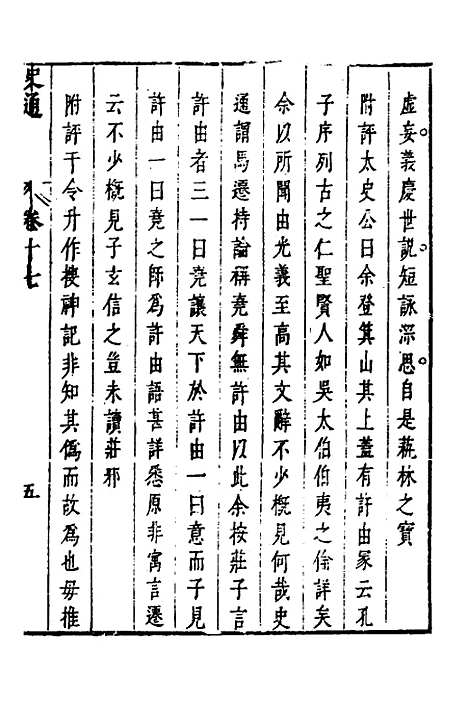 虛妄義慶世説短詠深思自是藝林之寶
附評太史公曰余登箕山其上蓋有許由冢云孔
子序列古之仁聖賢人如吳太伯伯夷之倫詳矣
余以所聞由光義至高其文辭不少概見何哉史
通謂馬遷持論稱堯舜無許由以此余按莊子言
許由者三一曰堯讓天下於許由一曰意而子見
許由一曰堯之師為許由語甚詳悉原非寓言遷
云不少概見子玄信之豈未讀莊邪
附評干令升作搜神記非知其僞而故為也毋推
史通
卷十七
五